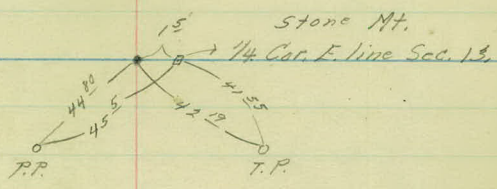 Stone Mt.
1⁵
1/4 Cor. E. line Sec. 13,
44⁸⁰
45⁵
42¹⁹
41⁵⁵
P.P.
T.P.